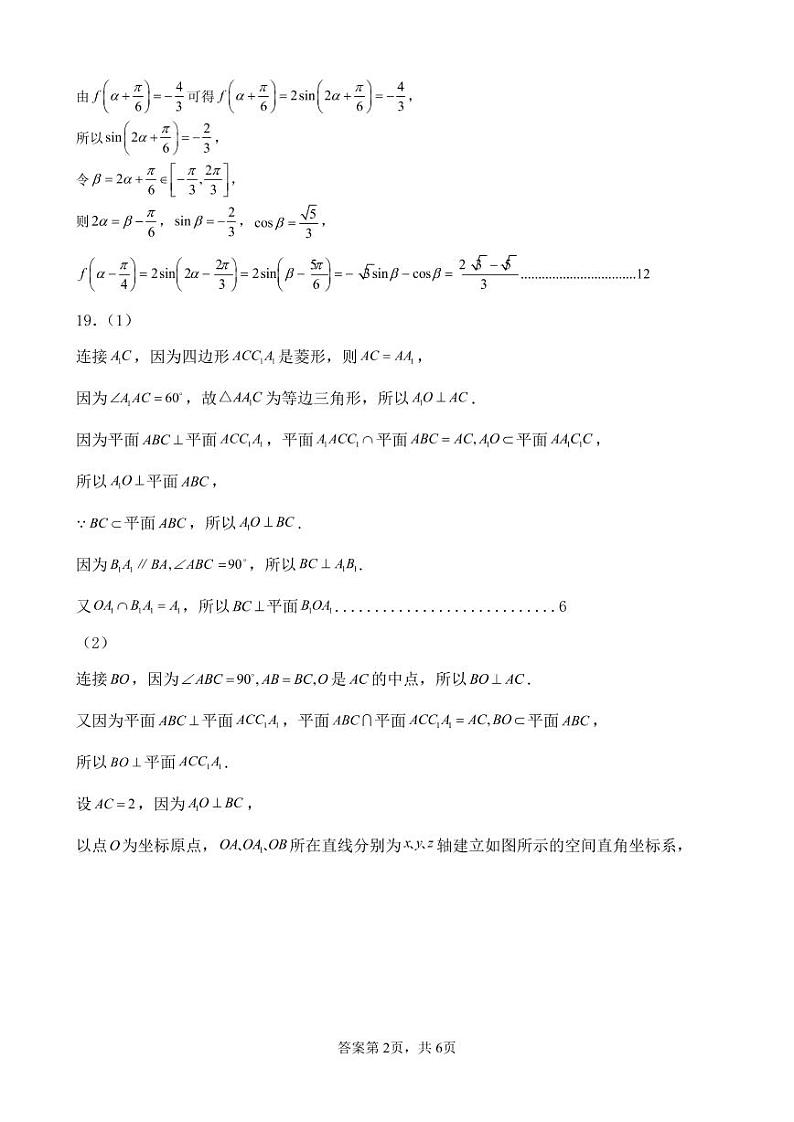 由 f(α+π/6)=-4/3 可得 f(α+π/6)=2sin(2α+π/6)=-4/3，
所以 sin(2α+π/6)=-2/3，
令 β=2α+π/6∈[-π/3,2π/3]，
则 2α=β-π/6，sinβ=-2/3，cosβ=√5/3，
f(α-π/4)=2sin(2α-2π/3)=2sin(β-5π/6)=-√3sinβ-cosβ=(2√3-√5)/3................................12
19.（1）
连接 A₁C，因为四边形 ACC₁A₁ 是菱形，则 AC=AA₁，
因为∠A₁AC=60°，故△AA₁C 为等边三角形，所以 A₁O⊥AC．
因为平面 ABC⊥平面 ACC₁A₁，平面 A₁ACC₁∩平面 ABC=AC,A₁O⊂平面 AA₁C₁C，
所以 A₁O⊥平面 ABC，
∵BC⊂平面 ABC，所以 A₁O⊥BC．
因为 B₁A₁∥BA,∠ABC=90°，所以 BC⊥A₁B₁．
又 OA₁∩B₁A₁=A₁，所以 BC⊥平面 B₁OA₁............................6
（2）
连接 BO，因为∠ABC=90°,AB=BC,O 是 AC 的中点，所以 BO⊥AC．
又因为平面 ABC⊥平面 ACC₁A₁，平面 ABC∩平面 ACC₁A₁=AC,BO⊂平面 ABC，
所以 BO⊥平面 ACC₁A₁．
设 AC=2，因为 A₁O⊥BC，
以点 O 为坐标原点，OA、OA₁、OB 所在直线分别为 x、y、z 轴建立如图所示的空间直角坐标系，
答案第 2页，共 6页